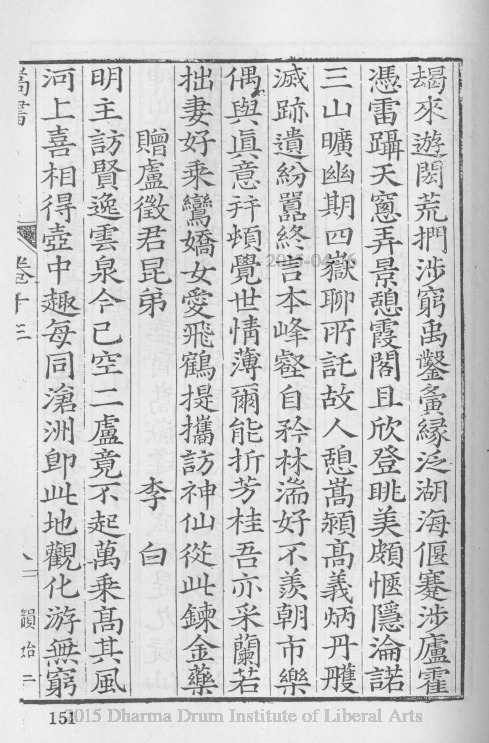 朅來遊閎荒捫涉窮禹鑿夤緣泛湖海偃蹇涉廬霍
憑雷躡天窻弄景憩霞閣且欣登眺美頗愜隱淪諾
三山曠幽期四嶽聊所託故人憩嵩潁高義炳丹雘
滅跡遺紛囂終言本峰壑自矜林湍好不羨朝市樂
偶與真意并頓覺世情薄爾能折芳桂吾亦采蘭若
拙妻好乘鸞嬌女愛飛鶴提攜訪神仙從此鍊金藥
贈盧徵君昆弟 李白
明主訪賢逸雲泉今已空二盧竟不起萬乘高其風
河上喜相得壺中趣每同滄洲卽此地觀化游無窮
嵩書 卷十三 八 韻始二
151
2015 Dharma Drum Institute of Liberal Arts